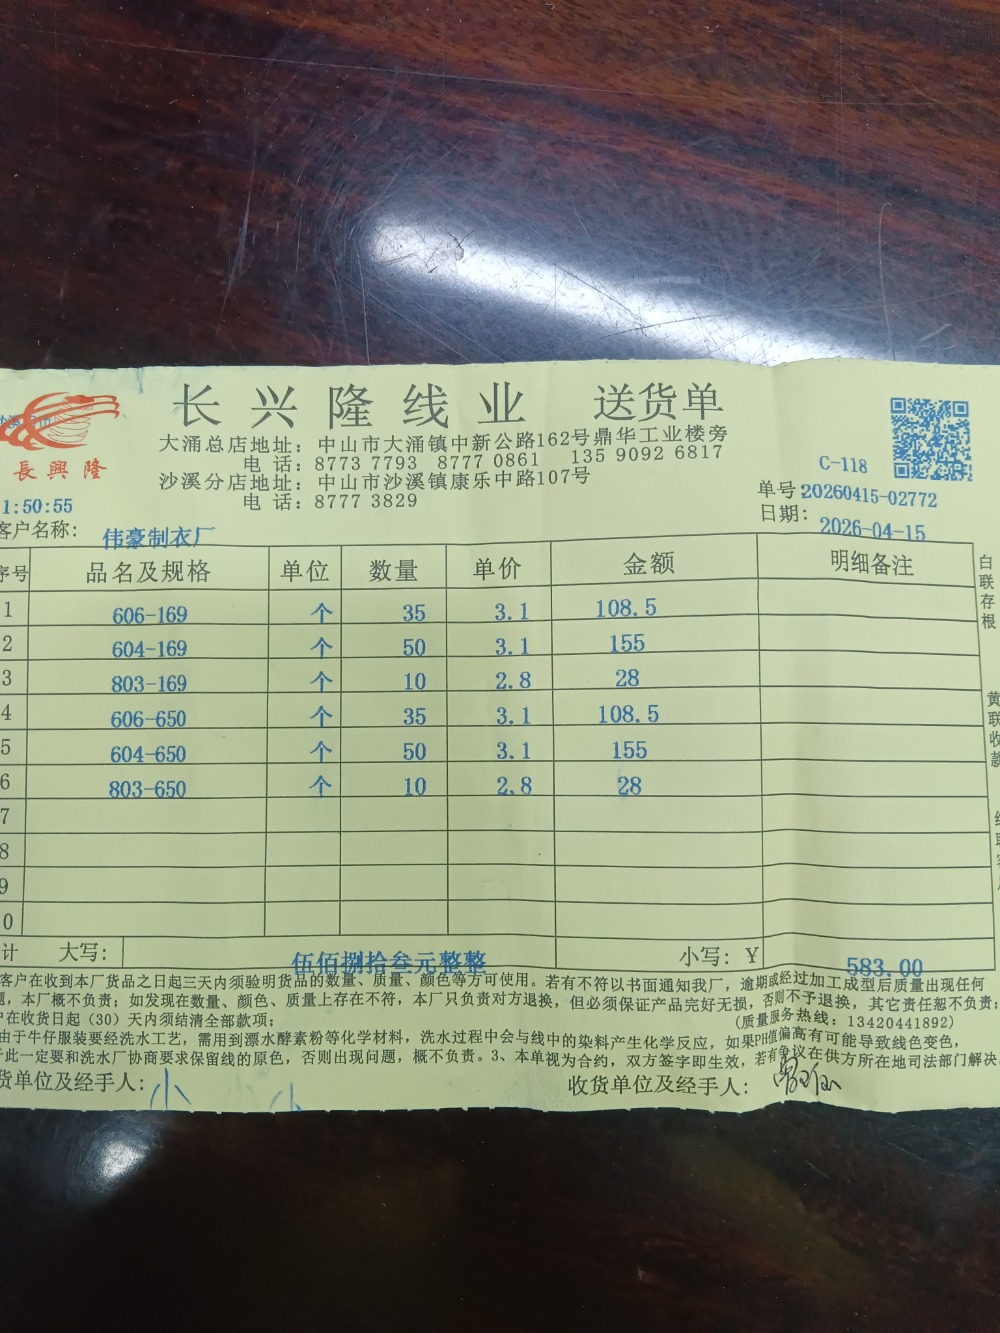 长兴隆线业 送货单
長興隆
大涌总店地址：中山市大涌镇中新公路162号鼎华工业楼旁
电 话：8773 7793 8777 0861 135 9092 6817
沙溪分店地址：中山市沙溪镇康乐中路107号
电 话：8777 3829
C-118
单号：20260415-02772
日期：2026-04-15
1:50:55
客户名称：伟豪制衣厂
序号 品名及规格 单位 数量 单价 金额 明细备注
1 606-169 个 35 3.1 108.5
2 604-169 个 50 3.1 155
3 803-169 个 10 2.8 28
4 606-650 个 35 3.1 108.5
5 604-650 个 50 3.1 155
6 803-650 个 10 2.8 28
7
8
9
0
计 大写：伍佰捌拾叁元整整 小写：￥583.00
白联存根
黄联收款
客户在收到本厂货品之日起三天内须验明货品的数量、质量、颜色等方可使用。若有不符以书面通知我厂，逾期或经过加工成型后质量出现任何
，本厂概不负责；如发现在数量、颜色、质量上存在不符，本厂只负责对方退换，但必须保证产品完好无损，否则不予退换，其它责任恕不负责；
在收货日起（30）天内须结清全部款项；
(质量服务热线：13420441892)
由于牛仔服装要经洗水工艺，需用到漂水酵素粉等化学材料，洗水过程中会与线中的染料产生化学反应，如果PH值偏高有可能导致线色变色，
此一定要和洗水厂协商要求保留线的原色，否则出现问题，概不负责。3、本单视为合约，双方签字即生效，若有争议在供方所在地司法部门解决
货单位及经手人：小
收货单位及经手人：